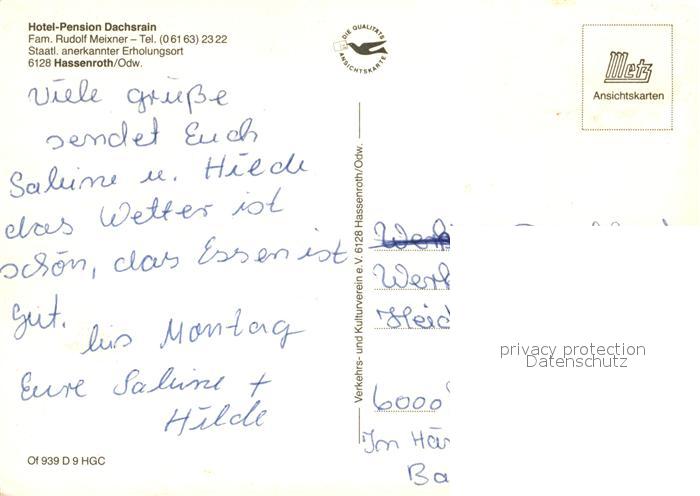 Hotel-Pension Dachsrain
Fam. Rudolf Meixner – Tel. (0 61 63) 23 22
Staatl. anerkannter Erholungsort
6128 Hassenroth/Odw.
DIE QUALITÄTS
ANSICHTSKARTE
Metz
Ansichtskarten
Viele grüße
sendet Euch
Sabine u. Hilde
das Wetter ist
schön, das Essen ist
gut.
bis Montag
Eure Sabine +
Hilde
Of 939 D 9 HGC
Verkehrs- und Kulturverein e.V. 6128 Hassenroth/Odw.
Werk
Heid
privacy protection
Datenschutz
6000
Im Här
Ba